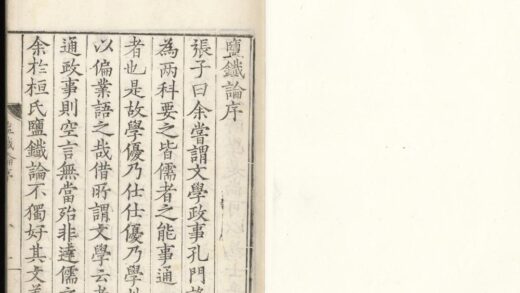 鹽鐵論序
張子曰余嘗謂文學政事孔門
為两科要之皆儒者之能事通
者也是故學優乃仕仕優乃學
以偏業語之哉借所謂文學云
通政事則空言無當殆非達儒
余扵桓氏鹽鐵論不獨好其文